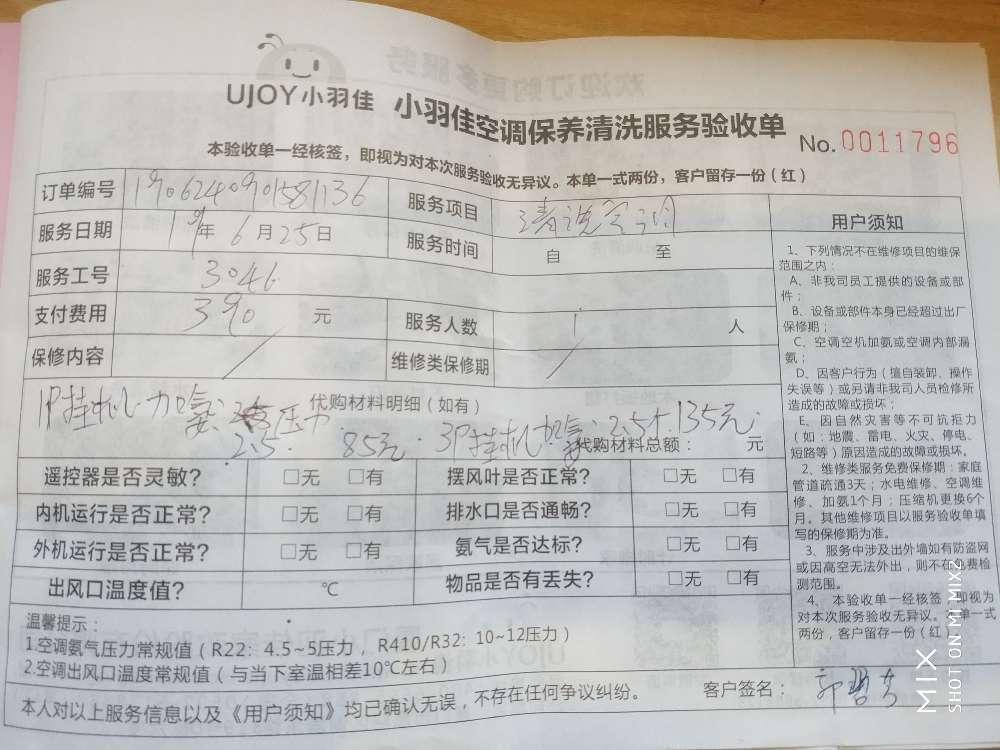 UJOY小羽佳 小羽佳空调保养清洗服务验收单
No. 0011796
本验收单一经核签，即视为对本次服务验收无异议。本单一式两份，客户留存一份（红）
订单编号 190624090158136 服务项目 清洗空调
服务日期 19年 6月25日 服务时间 自 至
服务工号 3046
支付费用 390 元 服务人数 1 人
保修内容 / 维修类保修期 /
代购材料明细（如有）
1P挂机加氨 压力
2.5 85元 3P挂机加氨 2.5个 135元
代购材料总额： 元
遥控器是否灵敏？ □无 □有 摆风叶是否正常？ □无 □有
内机运行是否正常？ □无 □有 排水口是否通畅？ □无 □有
外机运行是否正常？ □无 □有 氨气是否达标？ □无 □有
出风口温度值？ ℃ 物品是否有丢失？ □无 □有
温馨提示：
1.空调氨气压力常规值（R22：4.5~5压力，R410/R32：10~12压力）
2.空调出风口温度常规值（与当下室温相差10℃左右）
本人对以上服务信息以及《用户须知》均已确认无误，不存在任何争议纠纷。 客户签名：
用户须知
1、下列情况不在维修项目的维保
范围之内：
A、非我司员工提供的设备或部
件；
B、设备或部件本身已经超过出厂
保修期；
C、空调空机加氨或空调内部漏
氨；
D、因客户行为（擅自装卸、操作
失误等）或另请非我司人员检修所
造成的故障或损坏；
E、因自然灾害等不可抗拒力
（如：地震、雷电、火灾、停电、
短路等）原因造成的故障或损坏。
2、维修类服务免费保修期：家庭
管道疏通3天；水电维修、空调维
修、加氨1个月；压缩机更换6个
月。其他维修项目以服务验收单填
写的保修期为准。
3、服务中涉及出外墙如有防盗网
或因高空无法外出，则不在免费检
测范围。
4、本验收单一经核签，即视为
对本次服务验收无异议。本单一式
两份，客户留存一份（红）
MIX
SHOT ON MI MIX2